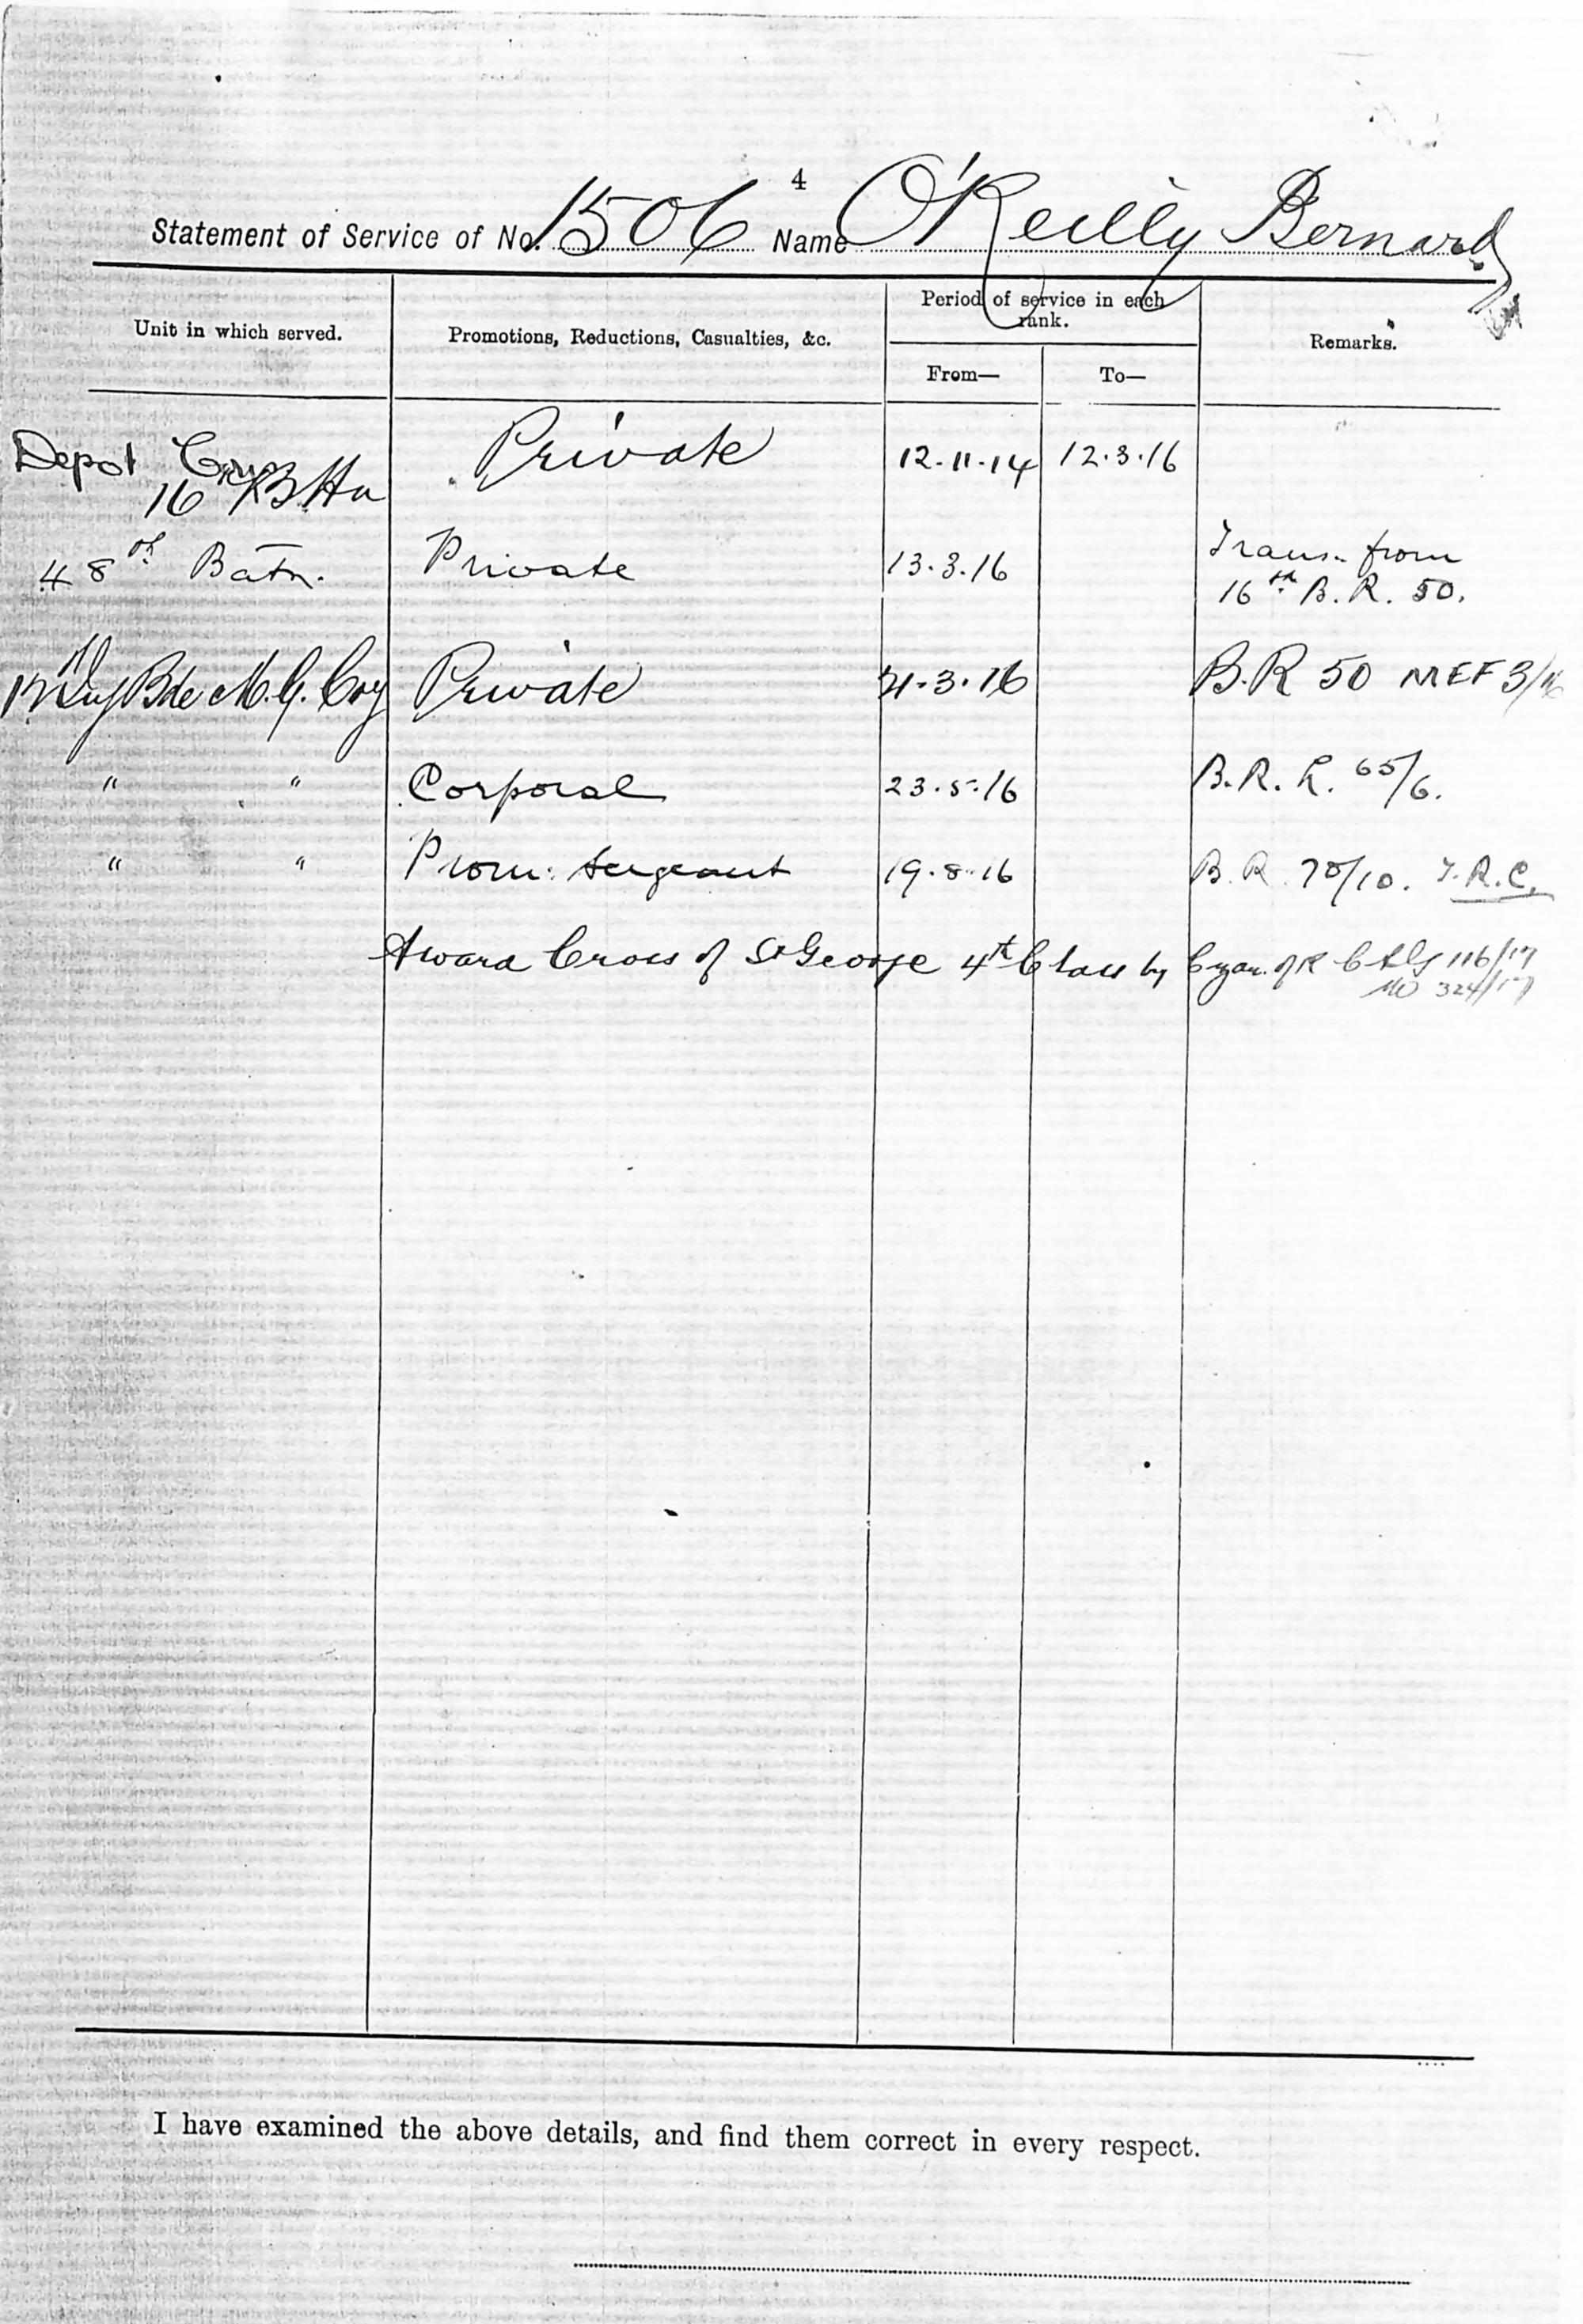 4
Statement of Service of No. 1506 Name O'Reilly Bernard
Unit in which served. Promotions, Reductions, Casualties, &c. Period of service in each rank. Remarks.
From— To—
Depot Private 12.11.14 12.3.16
16th Bttn
48th Batn. Private 13.3.16 Trans. from
16th B.R. 50.
12 Inf Bde M.G. Coy Private 21.3.16 B.R 50 MEF 3/16
" " Corporal 23.5.16 B.R. 65/6.
" " Prom: Sergeant 19.8.16 B.R. 78/10.
Award Cross of St George 4th Class by Czar of R 116/17
324/17
I have examined the above details, and find them correct in every respect.